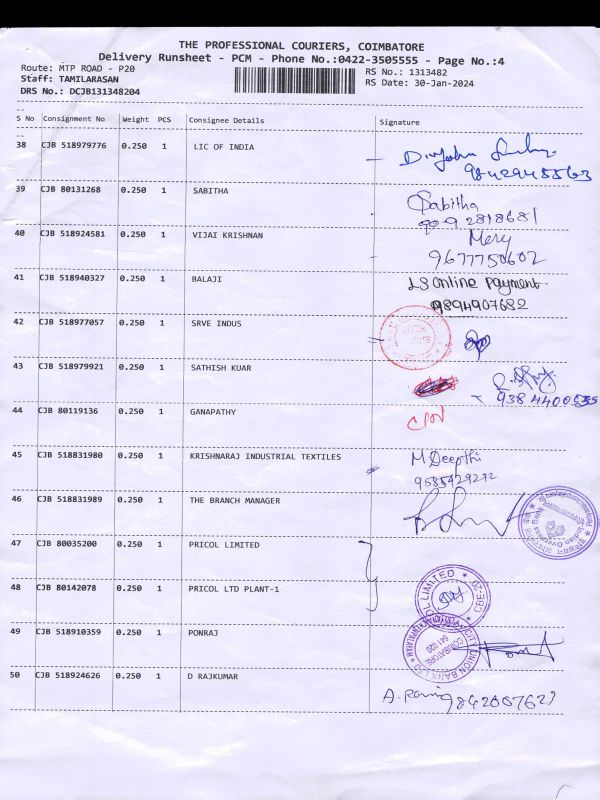 THE PROFESSIONAL COURIERS, COIMBATORE
Delivery Runsheet - PCM - Phone No.:0422-3505555 - Page No.:4
Route: MTP ROAD - P20
RS No.: 1313482
Staff: TAMILARASAN
RS Date: 30-Jan-2024
DRS No.: DCJB131348204
S No Consignment No Weight PCS Consignee Details Signature
38 CJB 518979776 0.250 1 LIC OF INDIA
9842945563
39 CJB 80131268 0.250 1 SABITHA
Sabitha
40 CJB 518924581 0.250 1 VIJAI KRISHNAN
Mery
9677750602
41 CJB 518940327 0.250 1 BALAJI
LS Online Payment
9894907682
42 CJB 518977057 0.250 1 SRVE INDUS
43 CJB 518979921 0.250 1 SATHISH KUAR
44 CJB 80119136 0.250 1 GANAPATHY
45 CJB 518831980 0.250 1 KRISHNARAJ INDUSTRIAL TEXTILES
M Deepthi
9585429272
46 CJB 518831989 0.250 1 THE BRANCH MANAGER
Indian Overseas Bank
47 CJB 80035200 0.250 1 PRICOL LIMITED
48 CJB 80142078 0.250 1 PRICOL LTD PLANT-1
LIMITED CBE-20
49 CJB 518910359 0.250 1 PONRAJ
CITY UNION BANK LTD
COIMBATORE
641 020
50 CJB 518924626 0.250 1 D RAJKUMAR